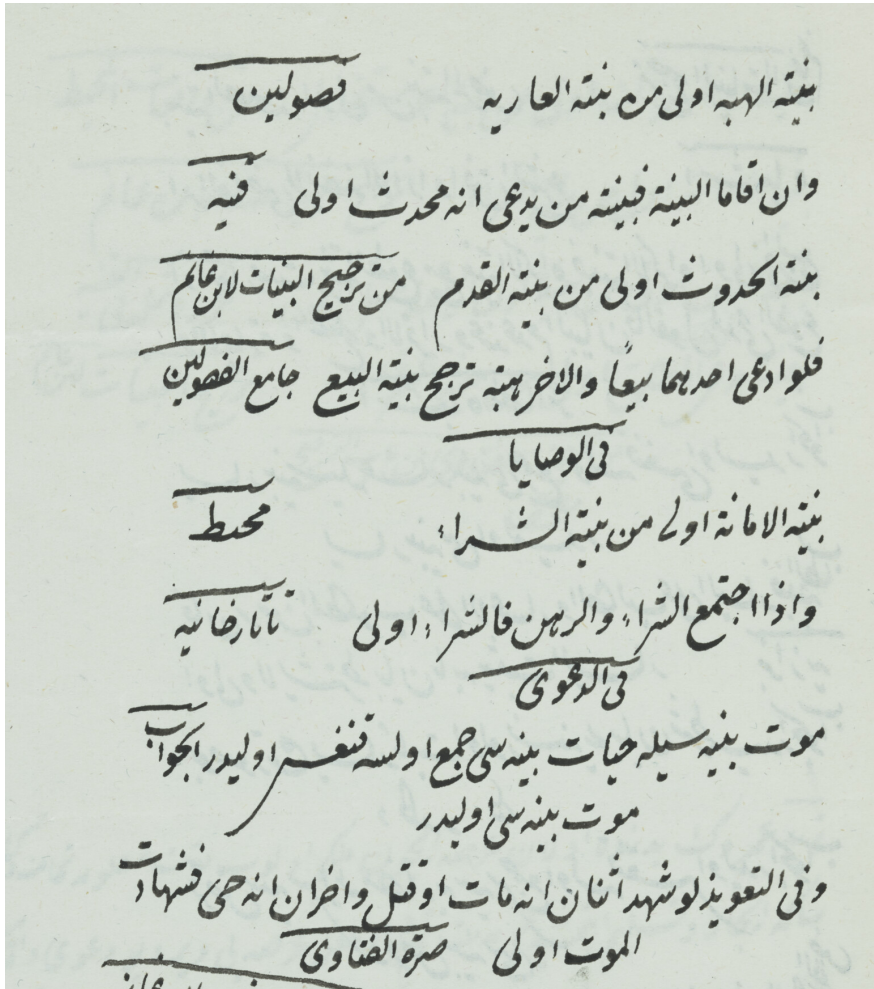 بينة الهبه اولى من بينة العاريه فصولين
وان اقاما البينة فبينة من يدعى انه محدث اولى قنيه
بينة الحدوث اولى من بينة القدم من ترجيح البينات لابن غانم
فلو ادعى احدهما بيعاً والاخر هبة ترجح بينة البيع جامع الفصولين
فى الوصايا
بينة الامانة اولى من بينة الشراء محيط
واذا اجتمع الشراء والرهن فالشراء اولى تاتارخانيه
فى الدعوى
موت بينه سيله حيات بينه سى جمع اولسه قنغيسى اوليدر الجواب
موت بينه سى اوليدر
وفى التعويذ لو شهد اثنان انه مات او قتل واخران انه حى فشهادت
الموت اولى صرة الفتاوى